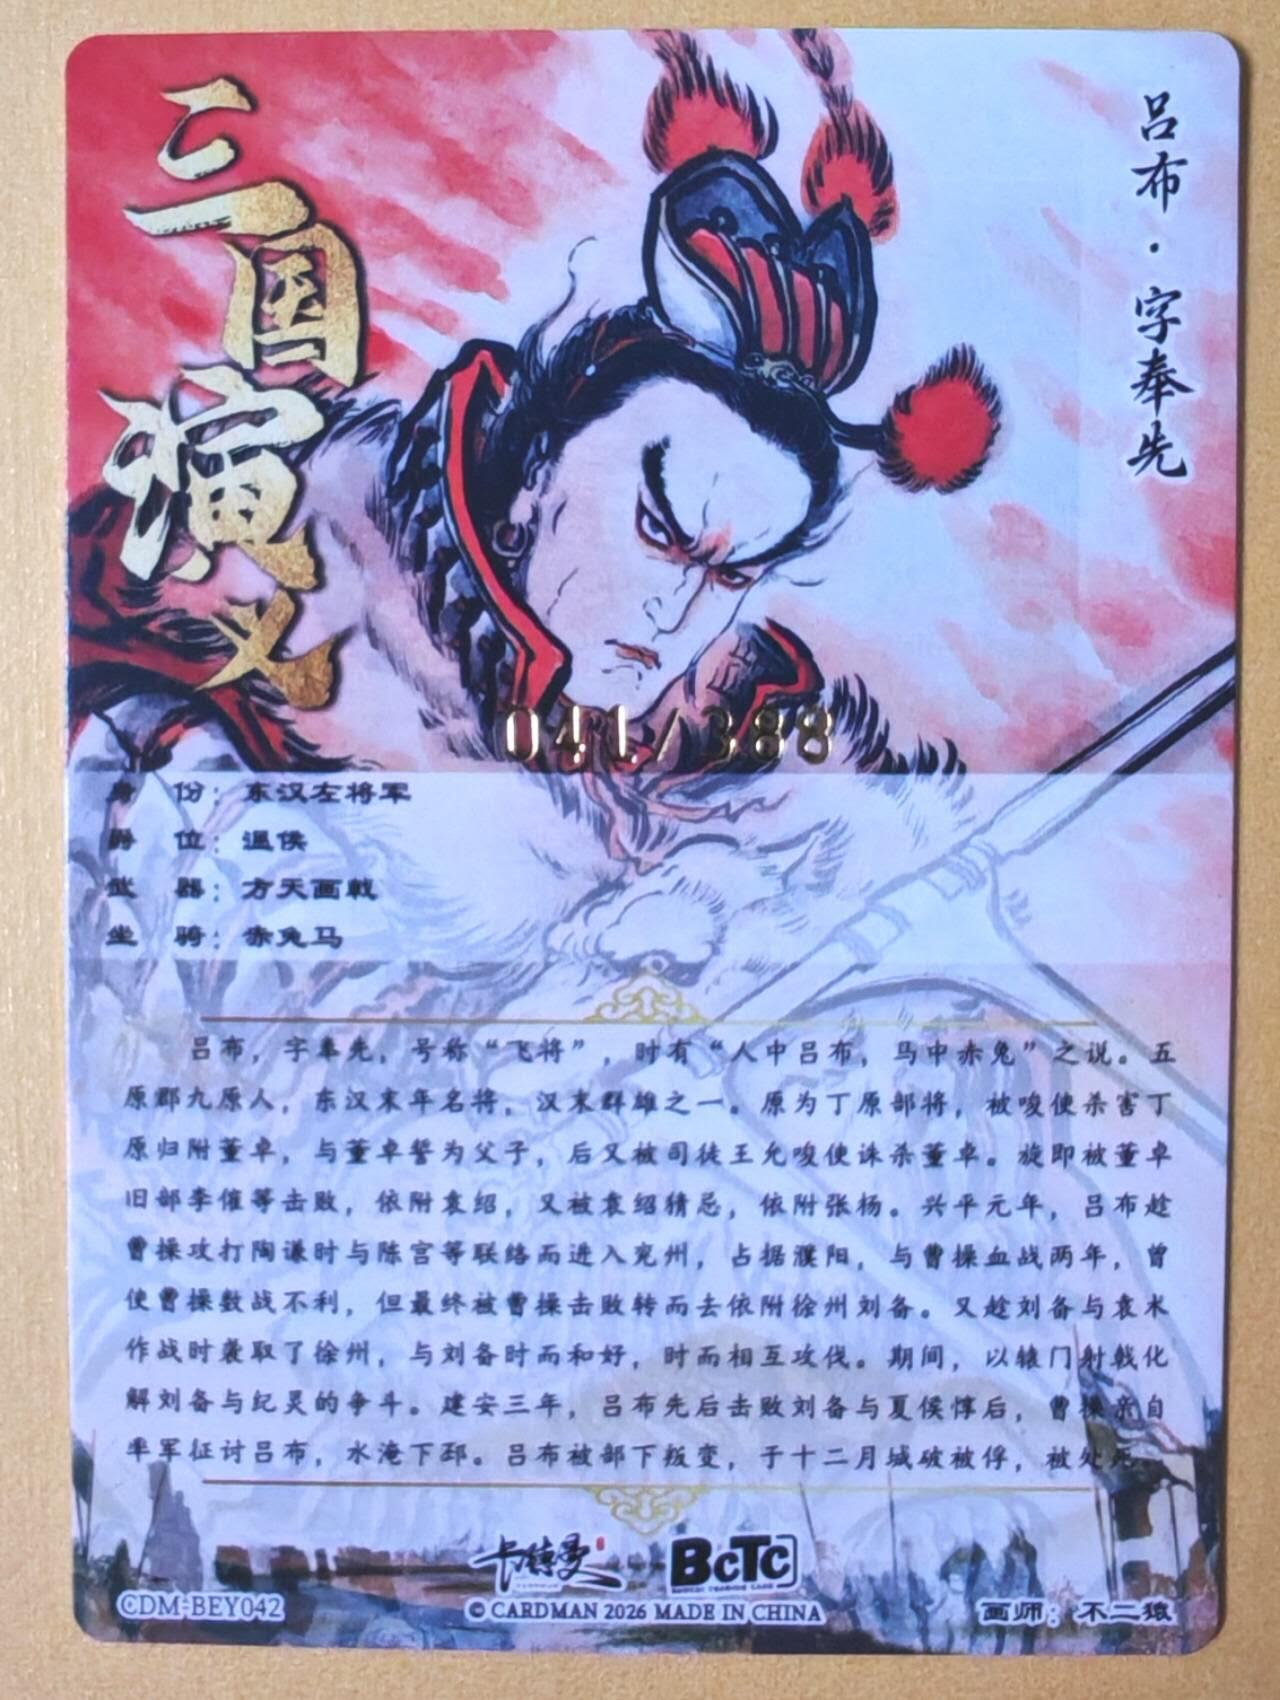 三国演义
吕布·字奉先
041/388
身 份：东汉左将军
爵 位：温侯
武 器：方天画戟
坐 骑：赤兔马
吕布，字奉先，号称“飞将”，时有“人中吕布，马中赤兔”之说。五
原郡九原人，东汉末年名将，汉末群雄之一。原为丁原部将，被唆使杀害丁
原归附董卓，与董卓誓为父子，后又被司徒王允唆使诛杀董卓。旋即被董卓
旧部李傕等击败，依附袁绍，又被袁绍猜忌，依附张杨。兴平元年，吕布趁
曹操攻打陶谦时与陈宫等联络而进入兖州，占据濮阳，与曹操血战两年，曾
使曹操数战不利，但最终被曹操击败转而去依附徐州刘备。又趁刘备与袁术
作战时袭取了徐州，与刘备时而和好，时而相互攻伐。期间，以辕门射戟化
解刘备与纪灵的争斗。建安三年，吕布先后击败刘备与夏侯惇后，曹操亲自
率军征讨吕布，水淹下邳。吕布被部下叛变，于十二月城破被俘，被处死
卡德曼 BCTC
CDM-BEY042
© CARDMAN 2026 MADE IN CHINA
画师：不二猿